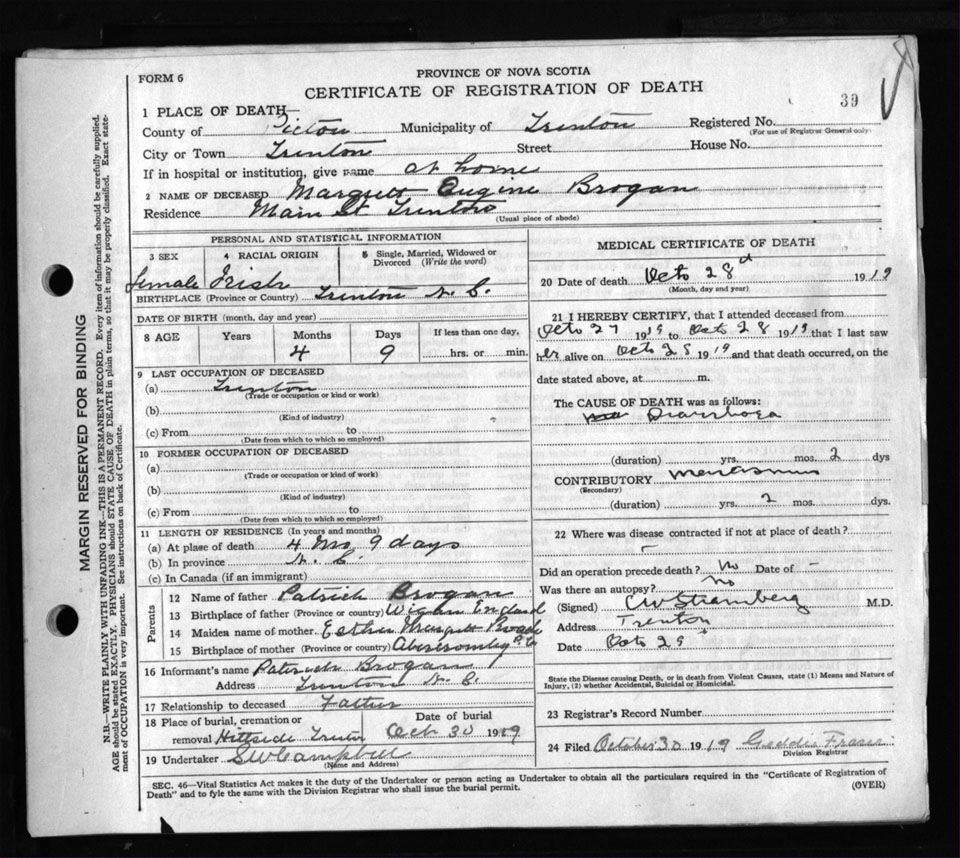 FORM 6
PROVINCE OF NOVA SCOTIA
CERTIFICATE OF REGISTRATION OF DEATH
39
1 PLACE OF DEATH—
County of Pictou Municipality of Trenton Registered No.
(For use of Registrar General only)
City or Town Trenton Street House No.
If in hospital or institution, give name at home
2 NAME OF DECEASED Margrett Eugine Brogan
Residence Main St Trenton
(Usual place of abode)
PERSONAL AND STATISTICAL INFORMATION
3 SEX 4 RACIAL ORIGIN 5 Single, Married, Widowed or Divorced (Write the word)
female Irish
BIRTHPLACE (Province or Country) Trenton N. S.
DATE OF BIRTH (month, day and year)
8 AGE Years Months Days If less than one day,
4 9 hrs. or min.
9 LAST OCCUPATION OF DECEASED
(a) Trenton
(Trade or occupation or kind or work)
(b)
(Kind of industry)
(c) From to
(Date from which to which so employed)
10 FORMER OCCUPATION OF DECEASED
(a)
(Trade or occupation or kind of work)
(b)
(Kind of industry)
(c) From to
(Date from which to which so employed)
11 LENGTH OF RESIDENCE (In years and months)
(a) At plase of death 4 Mo 9 days
(b) In province N. S.
(c) In Canada (if an immigrant)
Parents
12 Name of father Patrick Brogan
13 Birthplace of father (Province or country) Wigan England
14 Maiden name of mother Esther Margrett
15 Birthplace of mother (Province or country) Abercromby
16 Informant's name Patrick Brogan
Address Trenton N. S.
17 Relationship to deceased Father
18 Place of burial, cremation or removal Hillside Trenton
Date of burial
Oct 30 1919
19 Undertaker SW Campbell
(Name and Address)
MEDICAL CERTIFICATE OF DEATH
20 Date of death Octo 28 1919
(Month, day and year)
21 I HEREBY CERTIFY, that I attended deceased from
Octo 27 1919 to Octo 28 1919 that I last saw
her alive on Octo 28 1919 and that death occurred, on the
date stated above, at m.
The CAUSE OF DEATH was as follows:
Diarrhoea
(duration) yrs. mos. 2 dys
CONTRIBUTORY
(Secondary)
(duration) yrs. 2 mos. dys.
22 Where was disease contracted if not at place of death?
–
Did an operation precede death? No Date of –
Was there an autopsy? No
(Signed) CW Stramberg M.D.
Address Trenton
Date Octo 29
State the Disease causing Death, or in death from Violent Causes, state (1) Means and Nature of
Injury, (2) whether Accidental, Suicidal or Homicidal.
23 Registrar's Record Number
24 Filed October 30 1919 Geddie Fraser
Division Registrar
SEC. 46—Vital Statistics Act makes it the duty of the Undertaker or person acting as Undertaker to obtain all the particulars required in the "Certificate of Registration of
Death" and to fyle the same with the Division Registrar who shall issue the burial permit.
(OVER)
MARGIN RESERVED FOR BINDING
N.B.—WRITE PLAINLY WITH UNFADING INK—THIS IS A PERMANENT RECORD. Every item of information should be carefully supplied.
AGE should be stated EXACTLY. PHYSICIANS should STATE CAUSE OF DEATH in plain terms, so that it may be properly classified. Exact state-
ment of OCCUPATION is very important. See instructions on back of Certificate.